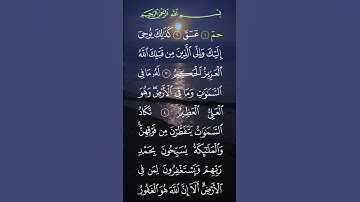 بِسْمِ ٱللَّهِ ٱلرَّحْمَٰنِ ٱلرَّحِيمِ
حمٓ ١ عٓسٓقٓ ٢ كَذَٰلِكَ يُوحِىٓ
إِلَيْكَ وَإِلَى ٱلَّذِينَ مِن قَبْلِكَ ٱللَّهُ
ٱلْعَزِيزُ ٱلْحَكِيمُ ٣ لَهُۥ مَا فِى
ٱلسَّمَٰوَٰتِ وَمَا فِى ٱلْأَرْضِ ۖ وَهُوَ
ٱلْعَلِىُّ ٱلْعَظِيمُ ٤ تَكَادُ
ٱلسَّمَٰوَٰتُ يَتَفَطَّرْنَ مِن فَوْقِهِنَّ ۚ
وَٱلْمَلَٰٓئِكَةُ يُسَبِّحُونَ بِحَمْدِ
رَبِّهِمْ وَيَسْتَغْفِرُونَ لِمَن فِى
ٱلْأَرْضِ ۗ أَلَآ إِنَّ ٱللَّهَ هُوَ ٱلْغَفُورُ